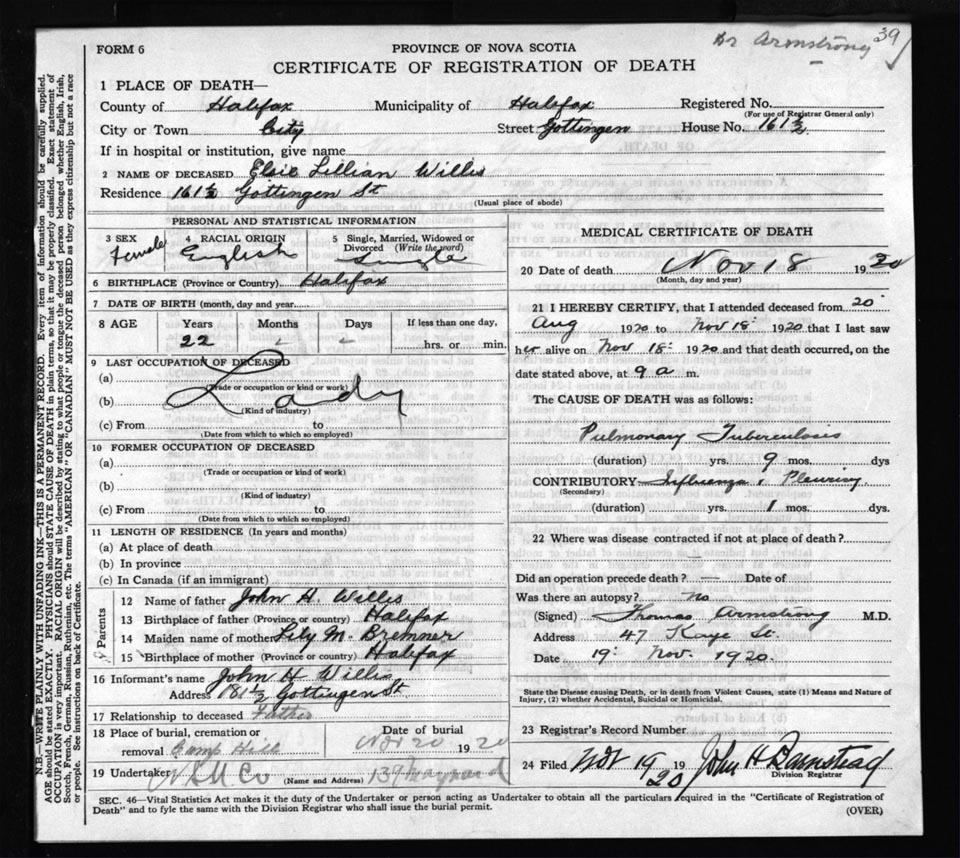 Dr Armstrong 39
FORM 6
PROVINCE OF NOVA SCOTIA
CERTIFICATE OF REGISTRATION OF DEATH
1 PLACE OF DEATH—
County of Halifax Municipality of Halifax Registered No.
(For use of Registrar General only)
City or Town City Street Gottingen House No. 161½
If in hospital or institution, give name
2 NAME OF DECEASED Elsie Lillian Willis
Residence 161½ Gottingen St
(Usual place of abode)
PERSONAL AND STATISTICAL INFORMATION
3 SEX Female
4 RACIAL ORIGIN English
5 Single, Married, Widowed or Divorced (Write the word) Single
6 BIRTHPLACE (Province or Country). Halifax
7 DATE OF BIRTH (month, day and year)
8 AGE Years Months Days If less than one day,
22 hrs. or min.
9 LAST OCCUPATION OF DECEASED
(a)
(Trade or occupation or kind or work)
(b) Lady
(Kind of industry)
(c) From to
(Date from which to which so employed)
10 FORMER OCCUPATION OF DECEASED
(a)
(Trade or occupation or kind of work)
(b)
(Kind of industry)
(c) From to
(Date from which to which so employed)
11 LENGTH OF RESIDENCE (In years and months)
(a) At place of death
(b) In province
(c) In Canada (if an immigrant)
Parents
12 Name of father John H. Willis
13 Birthplace of father (Province or country) Halifax
14 Maiden name of mother Lily M. Bremner
15 Birthplace of mother (Province or country) Halifax
16 Informant's name John H Willis
Address 181½ Gottingen St
17 Relationship to deceased Father
18 Place of burial, cremation or removal Camp Hill
Date of burial Nov 20 1920
19 Undertaker N.S.U Co (Name and Address) 139 Maynard
MEDICAL CERTIFICATE OF DEATH
20 Date of death Nov 18 1920
(Month, day and year)
21 I HEREBY CERTIFY, that I attended deceased from 20
Aug 1920 to Nov 18 1920 that I last saw
her alive on Nov 18 1920 and that death occurred, on the
date stated above, at 9 a m.
The CAUSE OF DEATH was as follows:
Pulmonary Tuberculosis
(duration) yrs. 9 mos. dys
CONTRIBUTORY Influenza, Pleurisy
(Secondary)
(duration) yrs. 1 mos. dys.
22 Where was disease contracted if not at place of death?
Did an operation precede death? — Date of
Was there an autopsy? no
(Signed) Thomas Armstrong M.D.
Address 47 Kaye St.
Date 19 Nov. 1920.
State the Disease causing Death, or in death from Violent Causes, state (1) Means and Nature of
Injury, (2) whether Accidental, Suicidal or Homicidal.
23 Registrar's Record Number
24 Filed Nov 19 1920 John H Barnstead
Division Registrar
SEC. 46—Vital Statistics Act makes it the duty of the Undertaker or person acting as Undertaker to obtain all the particulars required in the "Certificate of Registration of
Death" and to fyle the same with the Division Registrar who shall issue the burial permit.
(OVER)
N.B.—WRITE PLAINLY WITH UNFADING INK—THIS IS A PERMANENT RECORD. Every item of information should be carefully supplied.
AGE should be stated EXACTLY. PHYSICIANS should STATE CAUSE OF DEATH in plain terms, so that it may be properly classified. Exact statement of
OCCUPATION is very important. RACIAL ORIGIN will be described by stating to what people or tongue the deceased person belonged whether English, Irish,
Scotch, French, German, Russian, Ruthenian, etc. The terms "AMERICAN" or "CANADIAN" MUST NOT BE USED as they express citizenship but not a race
or people. See instructions on back of Certificate.